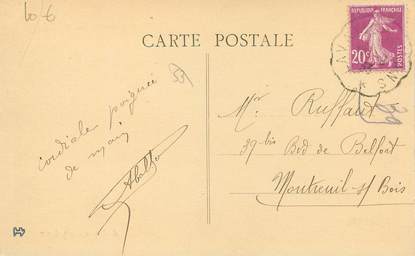 10 €
CARTE POSTALE
REPUBLIQUE FRANÇAISE
20c
POSTES
cordiale poignée
de main
Mr Ruffaut
39 bis Bed de Belfort
Montreuil s/ Bois